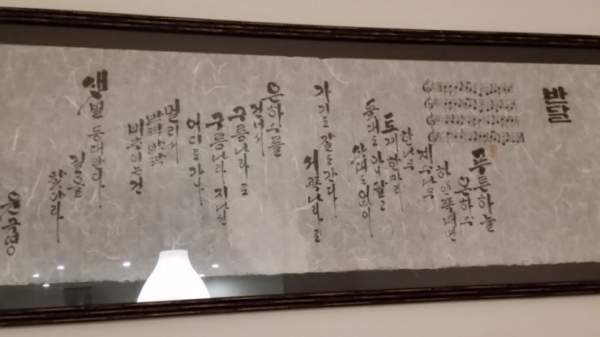 반달
푸른하늘
은하수
하얀쪽배엔
계수나무
한나무
토끼한마리
돛대도아니달고
삿대도없이
가기도잘도간다
서쪽나라로
은하수를
건너서
구름나라로
구름나라지나선
어디로가나
멀리서
반짝반짝
샛별등대란다
길을
찾아라